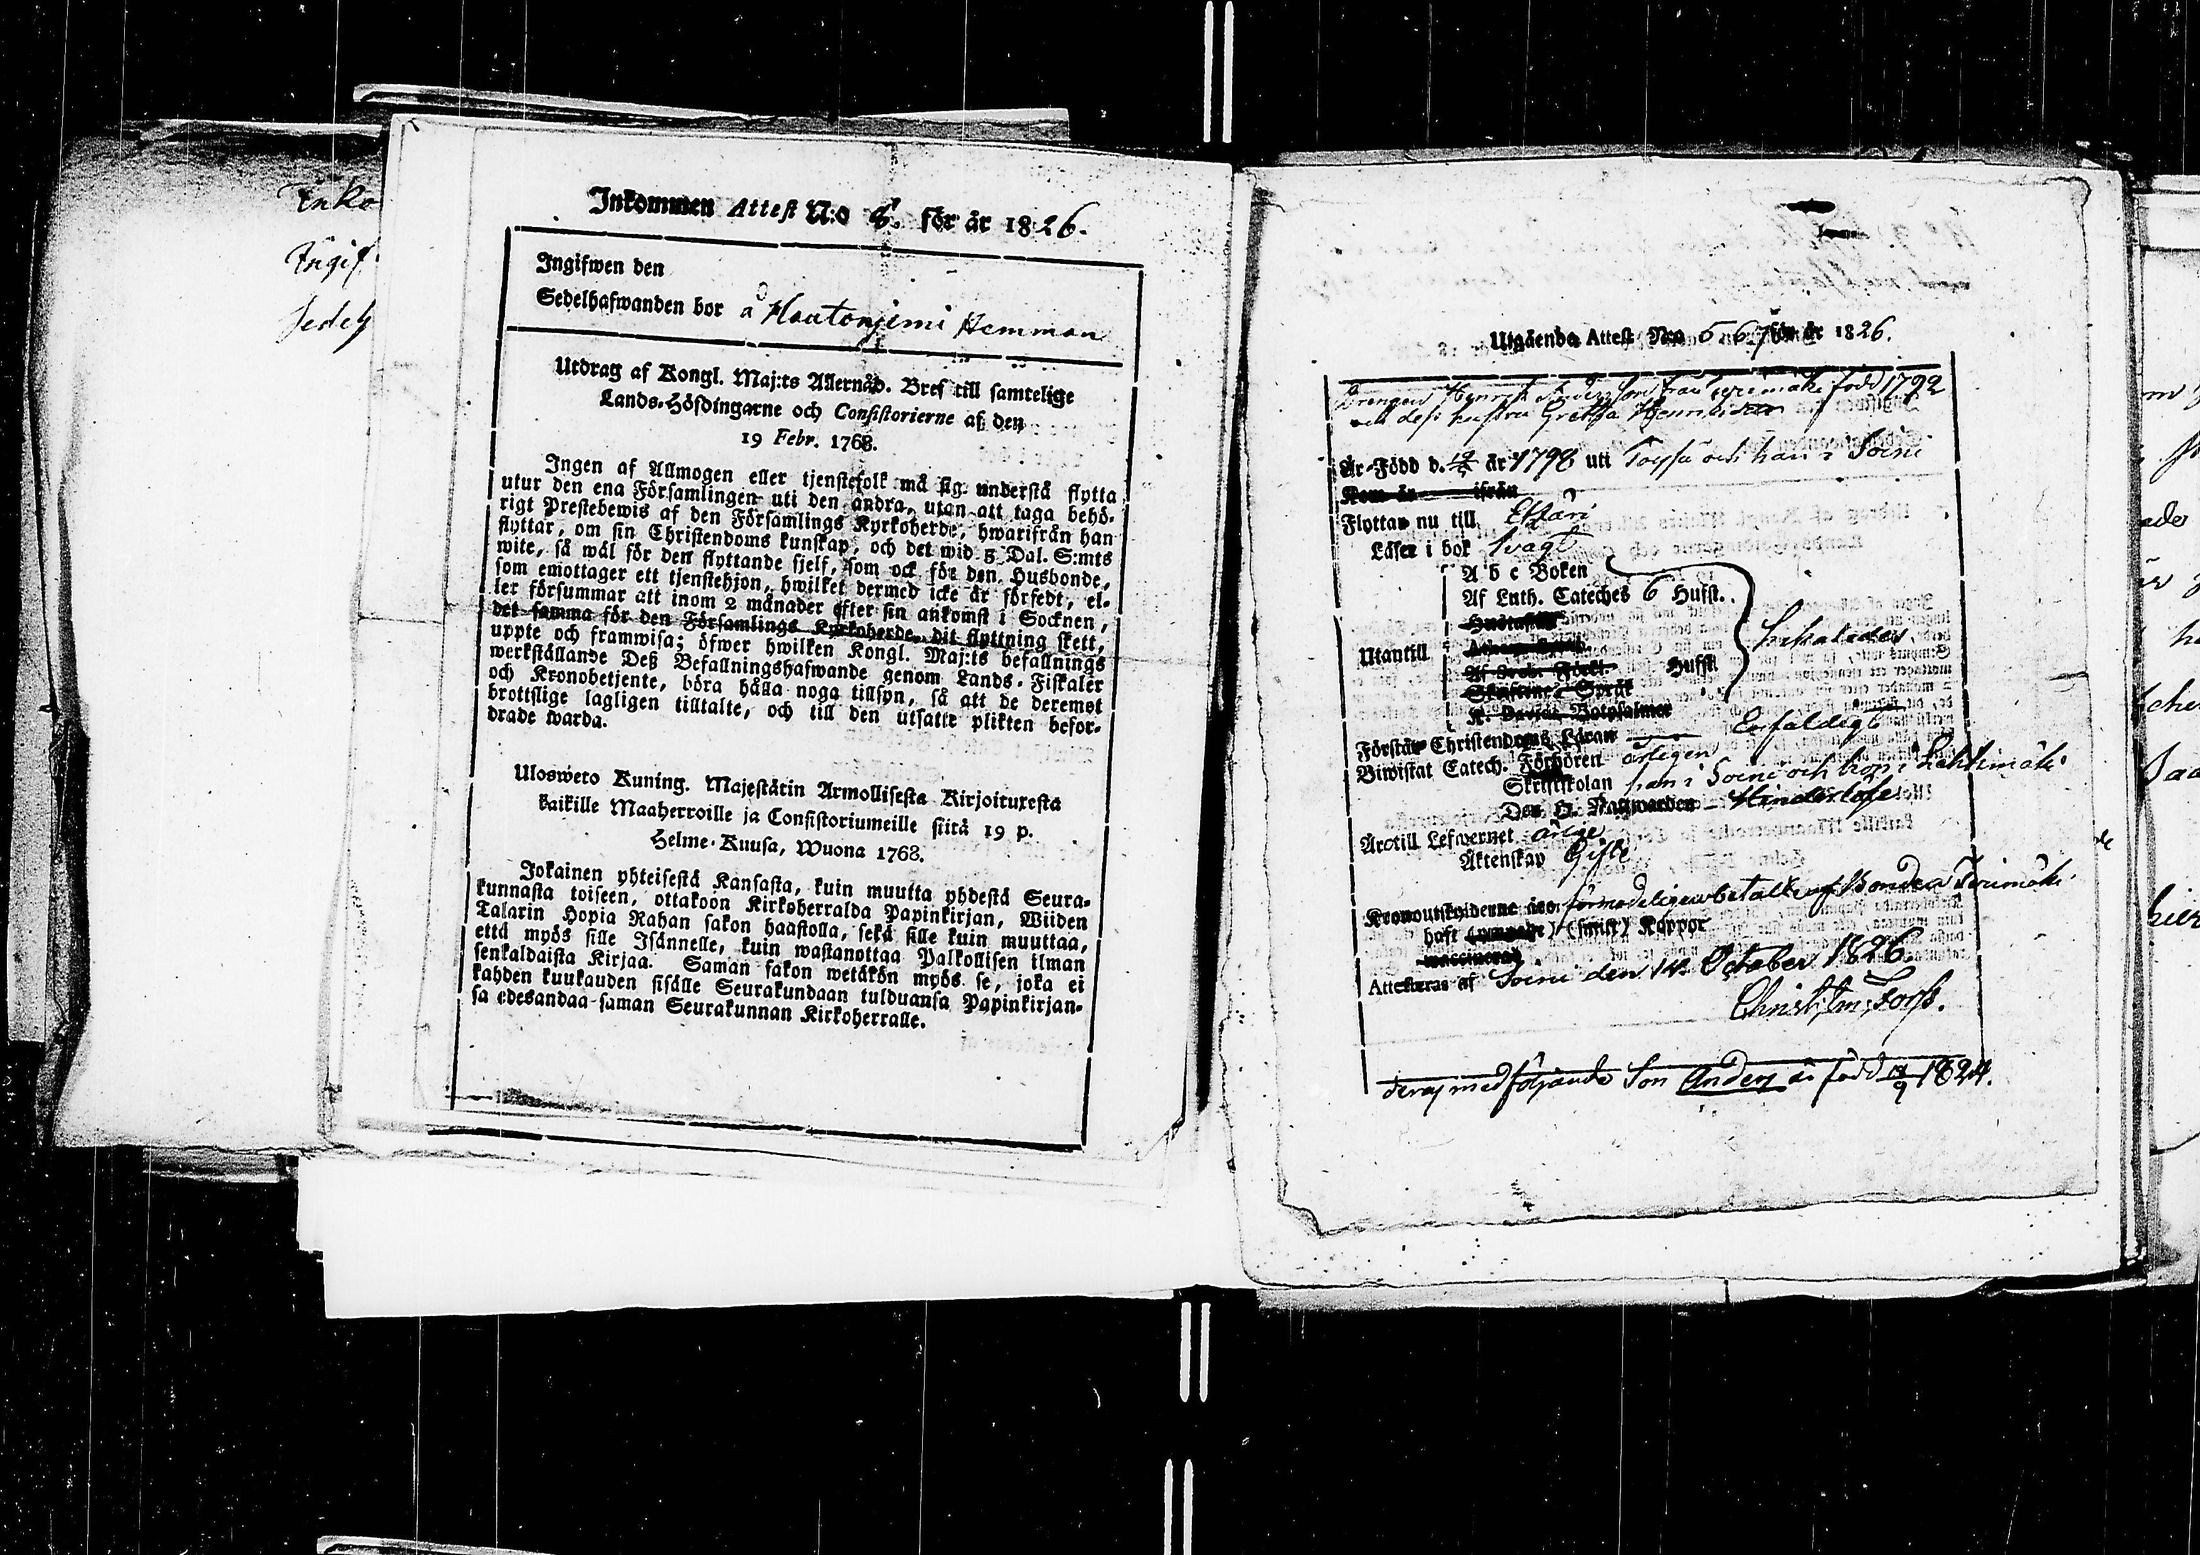 Inko
Ingif
Sedelh
Inkommen Attest N:o 8. för år 1826.
Ingifwen den
Sedelhafwanden bor å Hautonjemi Hemman
Utdrag af Kongl. Maj:ts Allernåd. Bref till samtelige
Lands-Höfdingarne och Consistorierne af den
19 Febr. 1768.
Ingen af Allmogen eller tjenstefolk må sig understå flytta
utur den ena Församlingen uti den andra, utan att taga behö-
rigt Prestebewis af den Församlings Kyrkoherde, hwarifrån han
flyttar, om sin Christendoms kunskap, och det wid 5 Dal. S:mts
wite, så wäl för den flyttande sjelf, som ock för den Husbonde,
som emottager ett tjenstehjon, hwilket dermed icke är förfedt, el-
ler försummar att inom 2 månader efter sin ankomst i Socknen,
det samma för den Församlings Kyrkoherde, dit flyttning skett,
uppte och framwisa; öfwer hwilken Kongl. Maj:ts befallnings
werkställande Deß Befallningshafwande genom Lands-Fiskaler
och Kronobetjente, böra hålla noga tillsyn, så att de deremot
brottslige lagligen tilltalte, och till den utsatte plikten befor-
drade warda.
Ulosweto Kuning. Majestätin Armollisesta Kirjoituxesta
kaikille Maaherroille ja Consistoriumeille siitä 19 p.
Helme-Kuusa, Wuona 1768.
Jokainen yhteisestä Kansasta, kuin muutta yhdestä Seura-
kunnasta toiseen, ottakoon Kirkoherralda Papinkirjan, Wiiden
Talarin Hopia Rahan sakon haastolla, sekä sille kuin muuttaa,
että myös sille Isännelle, kuin wastanottaa Palkollisen ilman
senkaldaista Kirjaa. Saman sakon wetäkön myös se, joka ei
kahden kuukauden sisälle Seurakundaan tulduansa Papinkirjan-
sa edesandaa saman Seurakunnan Kirkoherralle.
Utgående Attest N:o 567 för år 1826.
Drengen Henrik Andersson från Terimäki född 1792
och dess hustru Gretha
Är Född d. år 1798 uti Töysä och han i Soini
Kom år ifrån
Flyttar nu till Etseri
Läser i bok svagt
A b c Boken
Af Luth. Cateches 6 Hufst.
Utantill
Hufst.
K. Davids Botpsalmer
Förstår Christendoms Läran Enfaldigt
Biwistat Catech. Förhören årligen
Skriftskolan han i Soini och hon i Lehtimäki
Den H. Nattwarden Hinderlöse
År till Lefwernet ärlige
Äktenskap Gifte
Kronoutskylderne äro förmodeligen betalte af Bonden Terimäki
haft (smitt) Koppor
Attesteras af Soini den 14 October 1826.
Christ. Em. Forss.
deras medföljande Son Anders är född 1824.